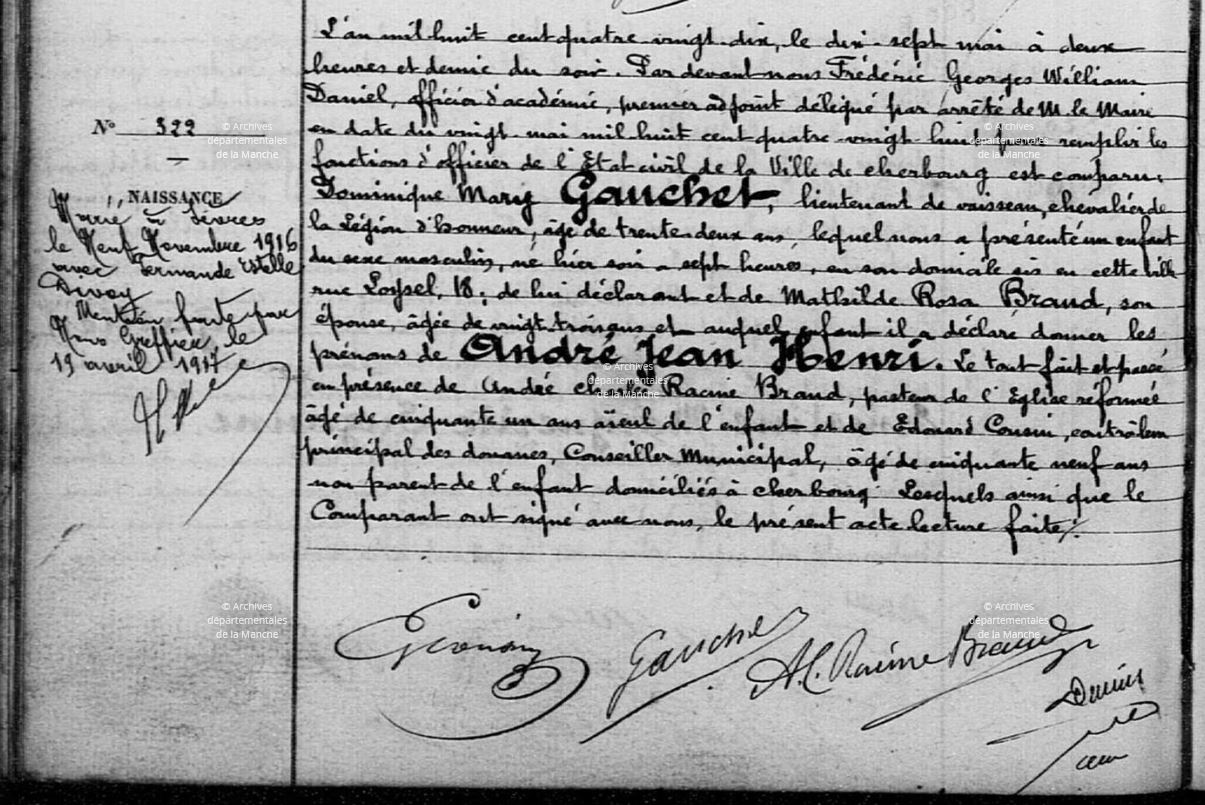 N° 322
NAISSANCE
Marié à Sèvres
le Neuf Novembre 1916
avec Fernande Estelle
Divoy
Mention faite par
Nous Greffier, le
19 avril 1917
L'an mil huit cent quatre vingt-dix, le dix-sept mai à deux
heures et demie du soir. Par devant nous Frédéric Georges William
Daniel, officier d'académie, premier adjoint délégué par arrêté de M. le Maire
en date du vingt mai mil huit cent quatre-vingt-huit remplir les
fonctions d'officier de l'Etat civil de la Ville de Cherbourg est comparu:
Dominique Marie Gauchet, lieutenant de vaisseau, chevalier de
la Légion d'honneur, âgé de trente-deux ans, lequel nous a présenté un enfant
du sexe masculin, né hier soir a sept heures, en son domicile sis en cette ville
rue Loysel, 18, de lui déclarant et de Mathilde Rosa Braud, son
épouse, âgée de vingt-trois ans et auquel enfant il a déclaré donner les
prénoms de André Jean Henri. Le tout fait et passé
en présence de André Charles Racine Braud, pasteur de l'Eglise réformée
âgé de cinquante un ans aïeul de l'enfant et de Edouard Cousin, contrôleur
principal des douanes, Conseiller Municipal, âgé de cinquante neuf ans
non parent de l'enfant domiciliés à Cherbourg Lesquels ainsi que le
Comparant ont signé avec nous, le présent acte lecture faite.
Gauchet
A.C. Racine Braud
© Archives
départementales
de la Manche
© Archives
départementales
de la Manche
© Archives
départementales
de la Manche
© Archives
départementales
de la Manche
© Archives
départementales
de la Manche